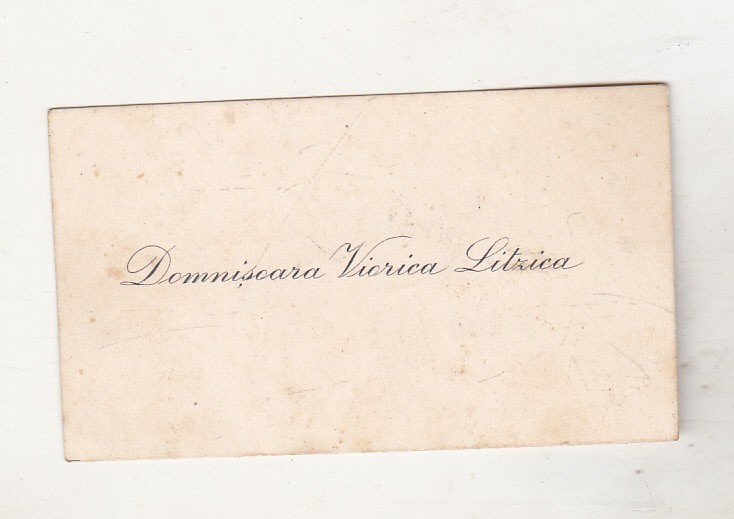 Domnișoara Viorica Litzica